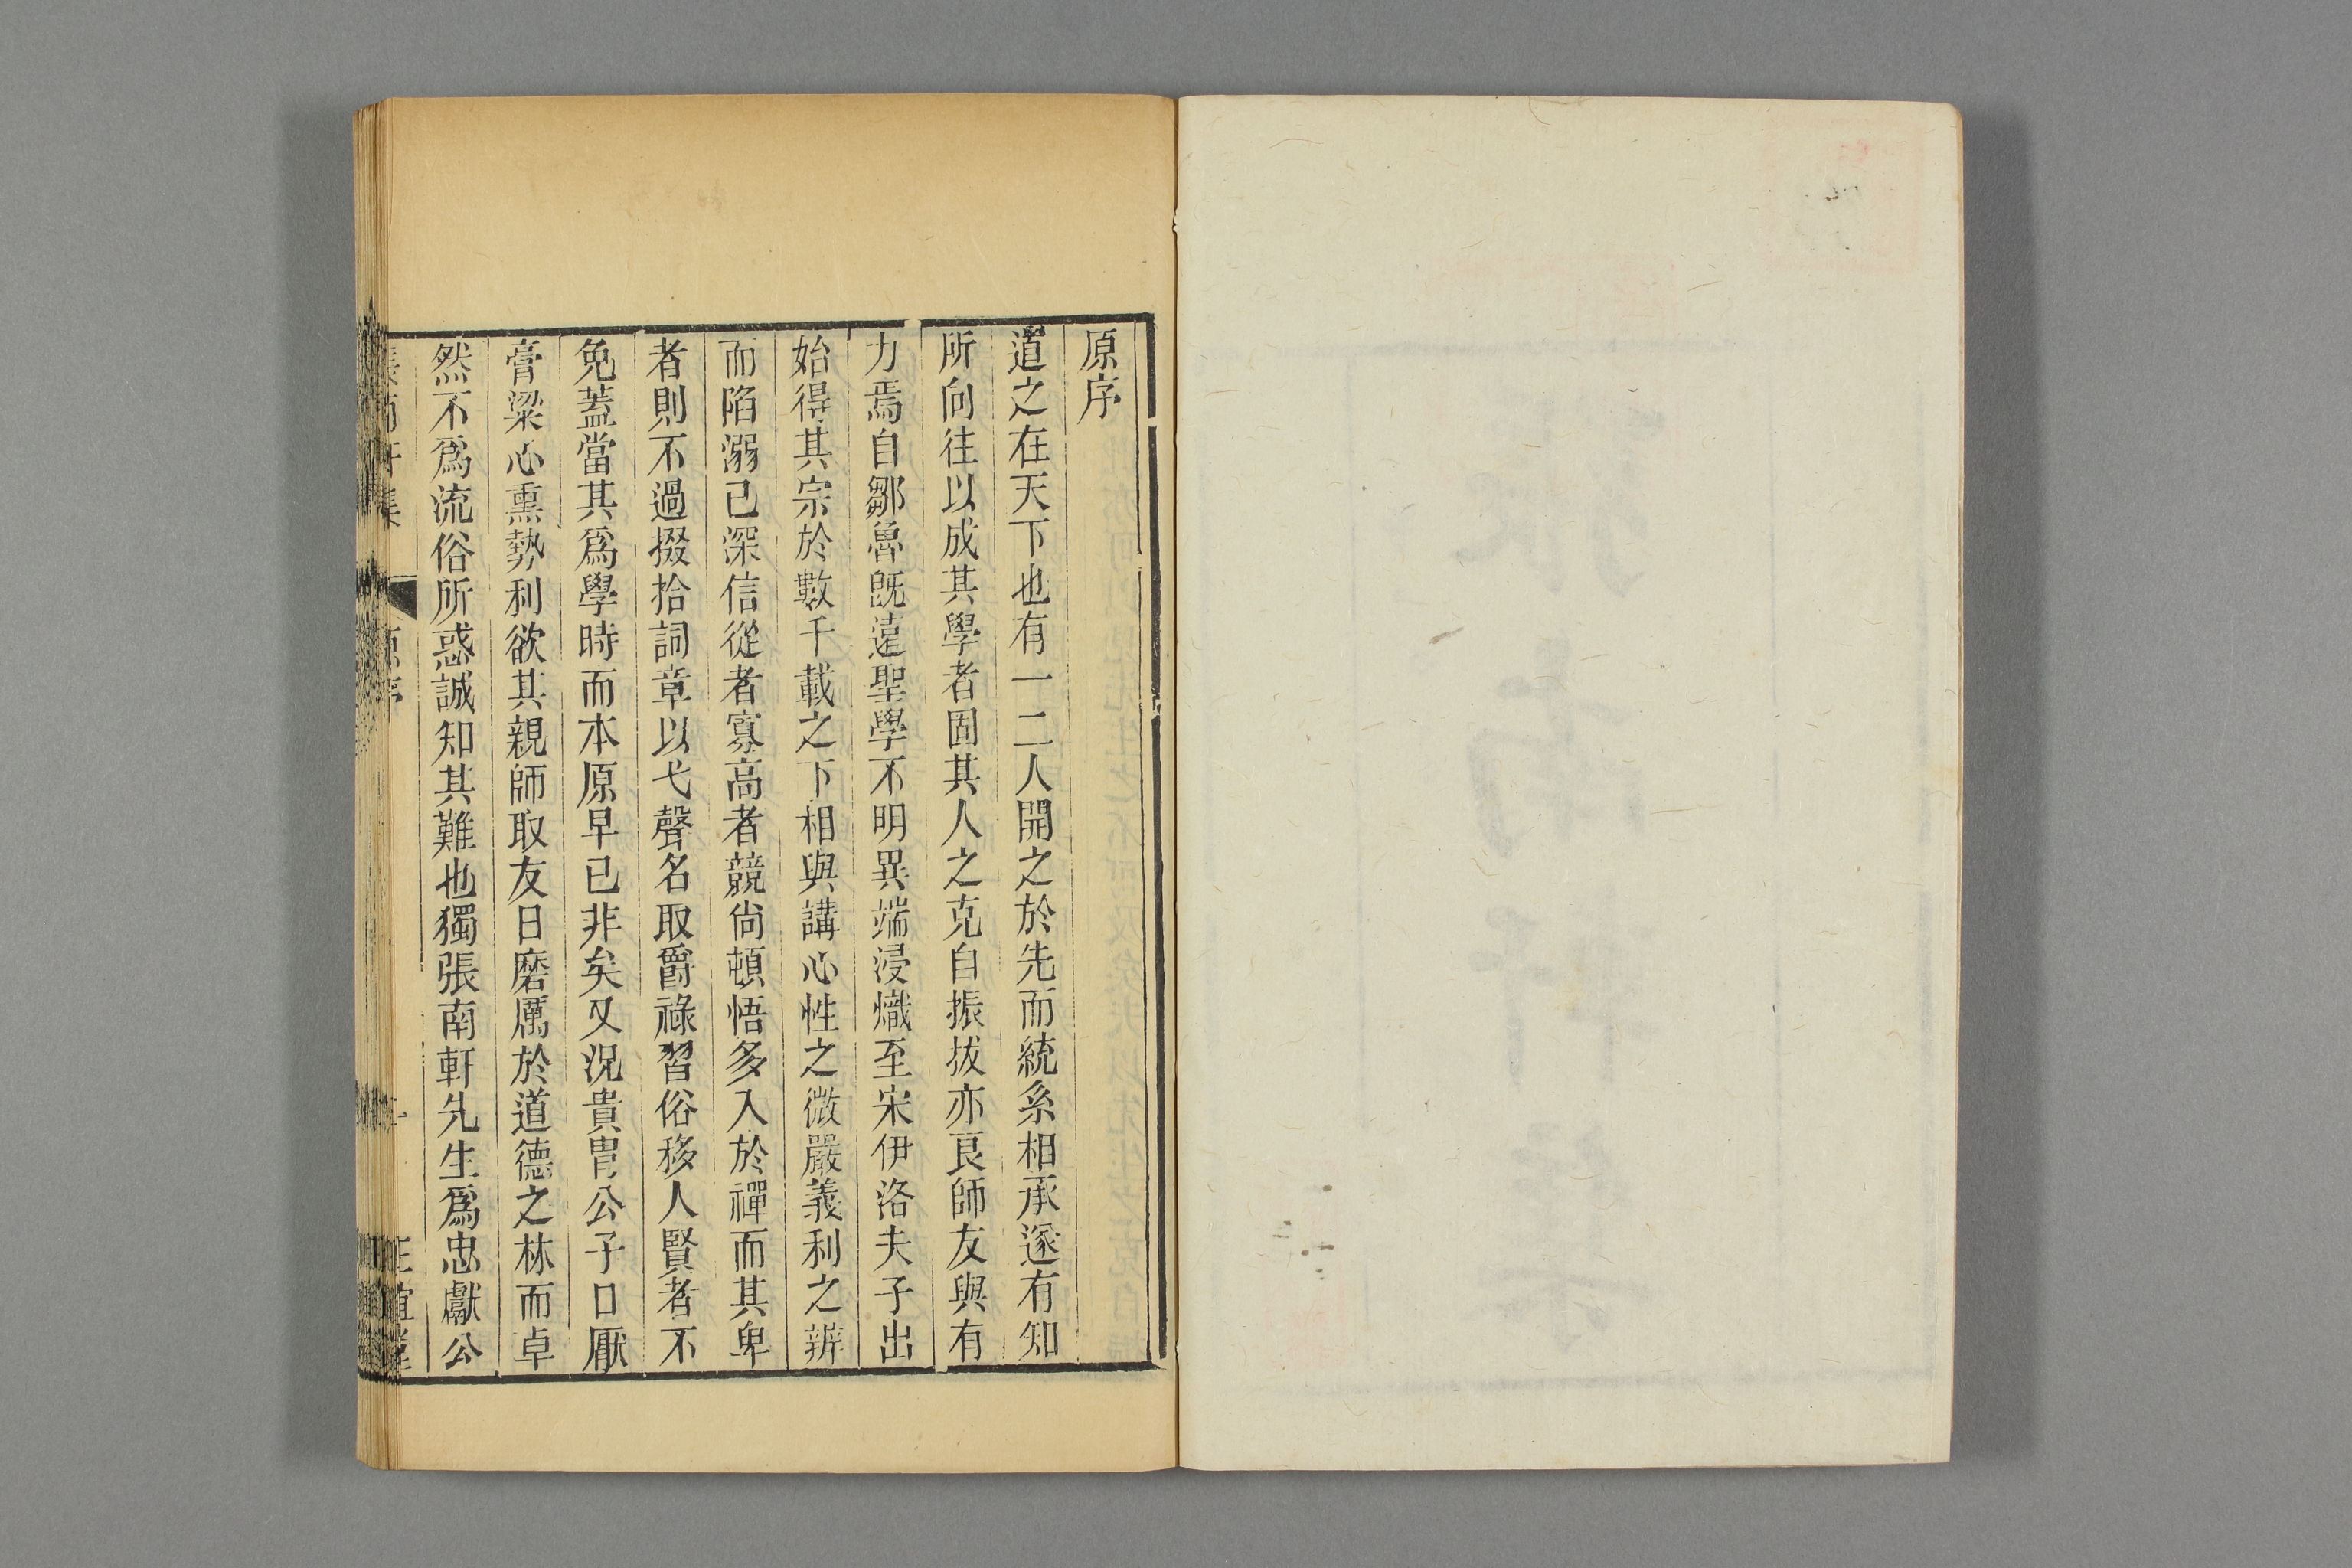 原序
道之在天下也有一二人開之於先而統系相承遂有知
所向往以成其學者固其人之克自振拔亦良師友與有
力焉自鄒魯既遠聖學不明異端浸熾至宋伊洛夫子出
始得其宗於數千載之下相與講心性之微嚴義利之辨
而陷溺已深信從者寡高者競尙頓悟多入於禪而其卑
者則不過掇拾詞章以弋聲名取爵祿習俗移人賢者不
免蓋當其爲學時而本原早已非矣又況貴胄公子口厭
膏粱心熏勢利欲其親師取友日磨厲於道德之林而卓
然不爲流俗所惑誠知其難也獨張南軒先生爲忠獻公
張南軒集 原序 一 正誼堂